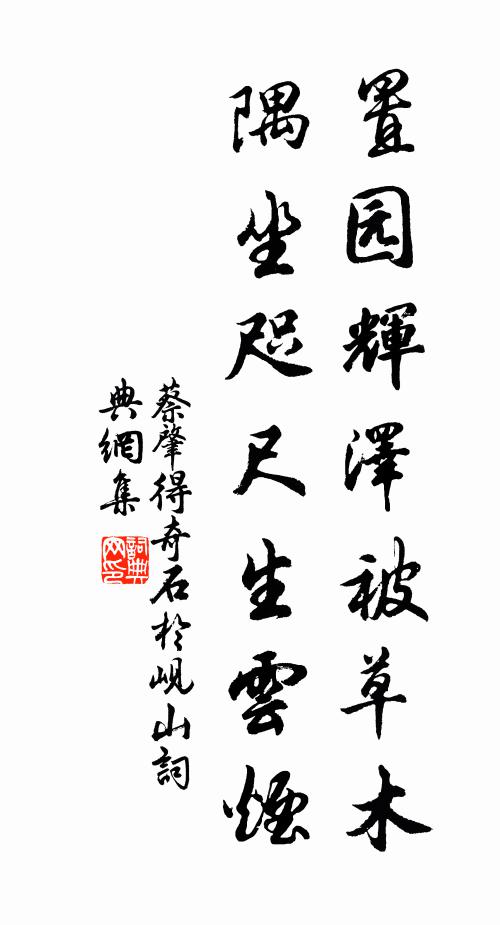 置园輝澤被草木
隅坐咫尺生雲煙
蔡肇得奇石於峴山詞
典網集
詞典網印